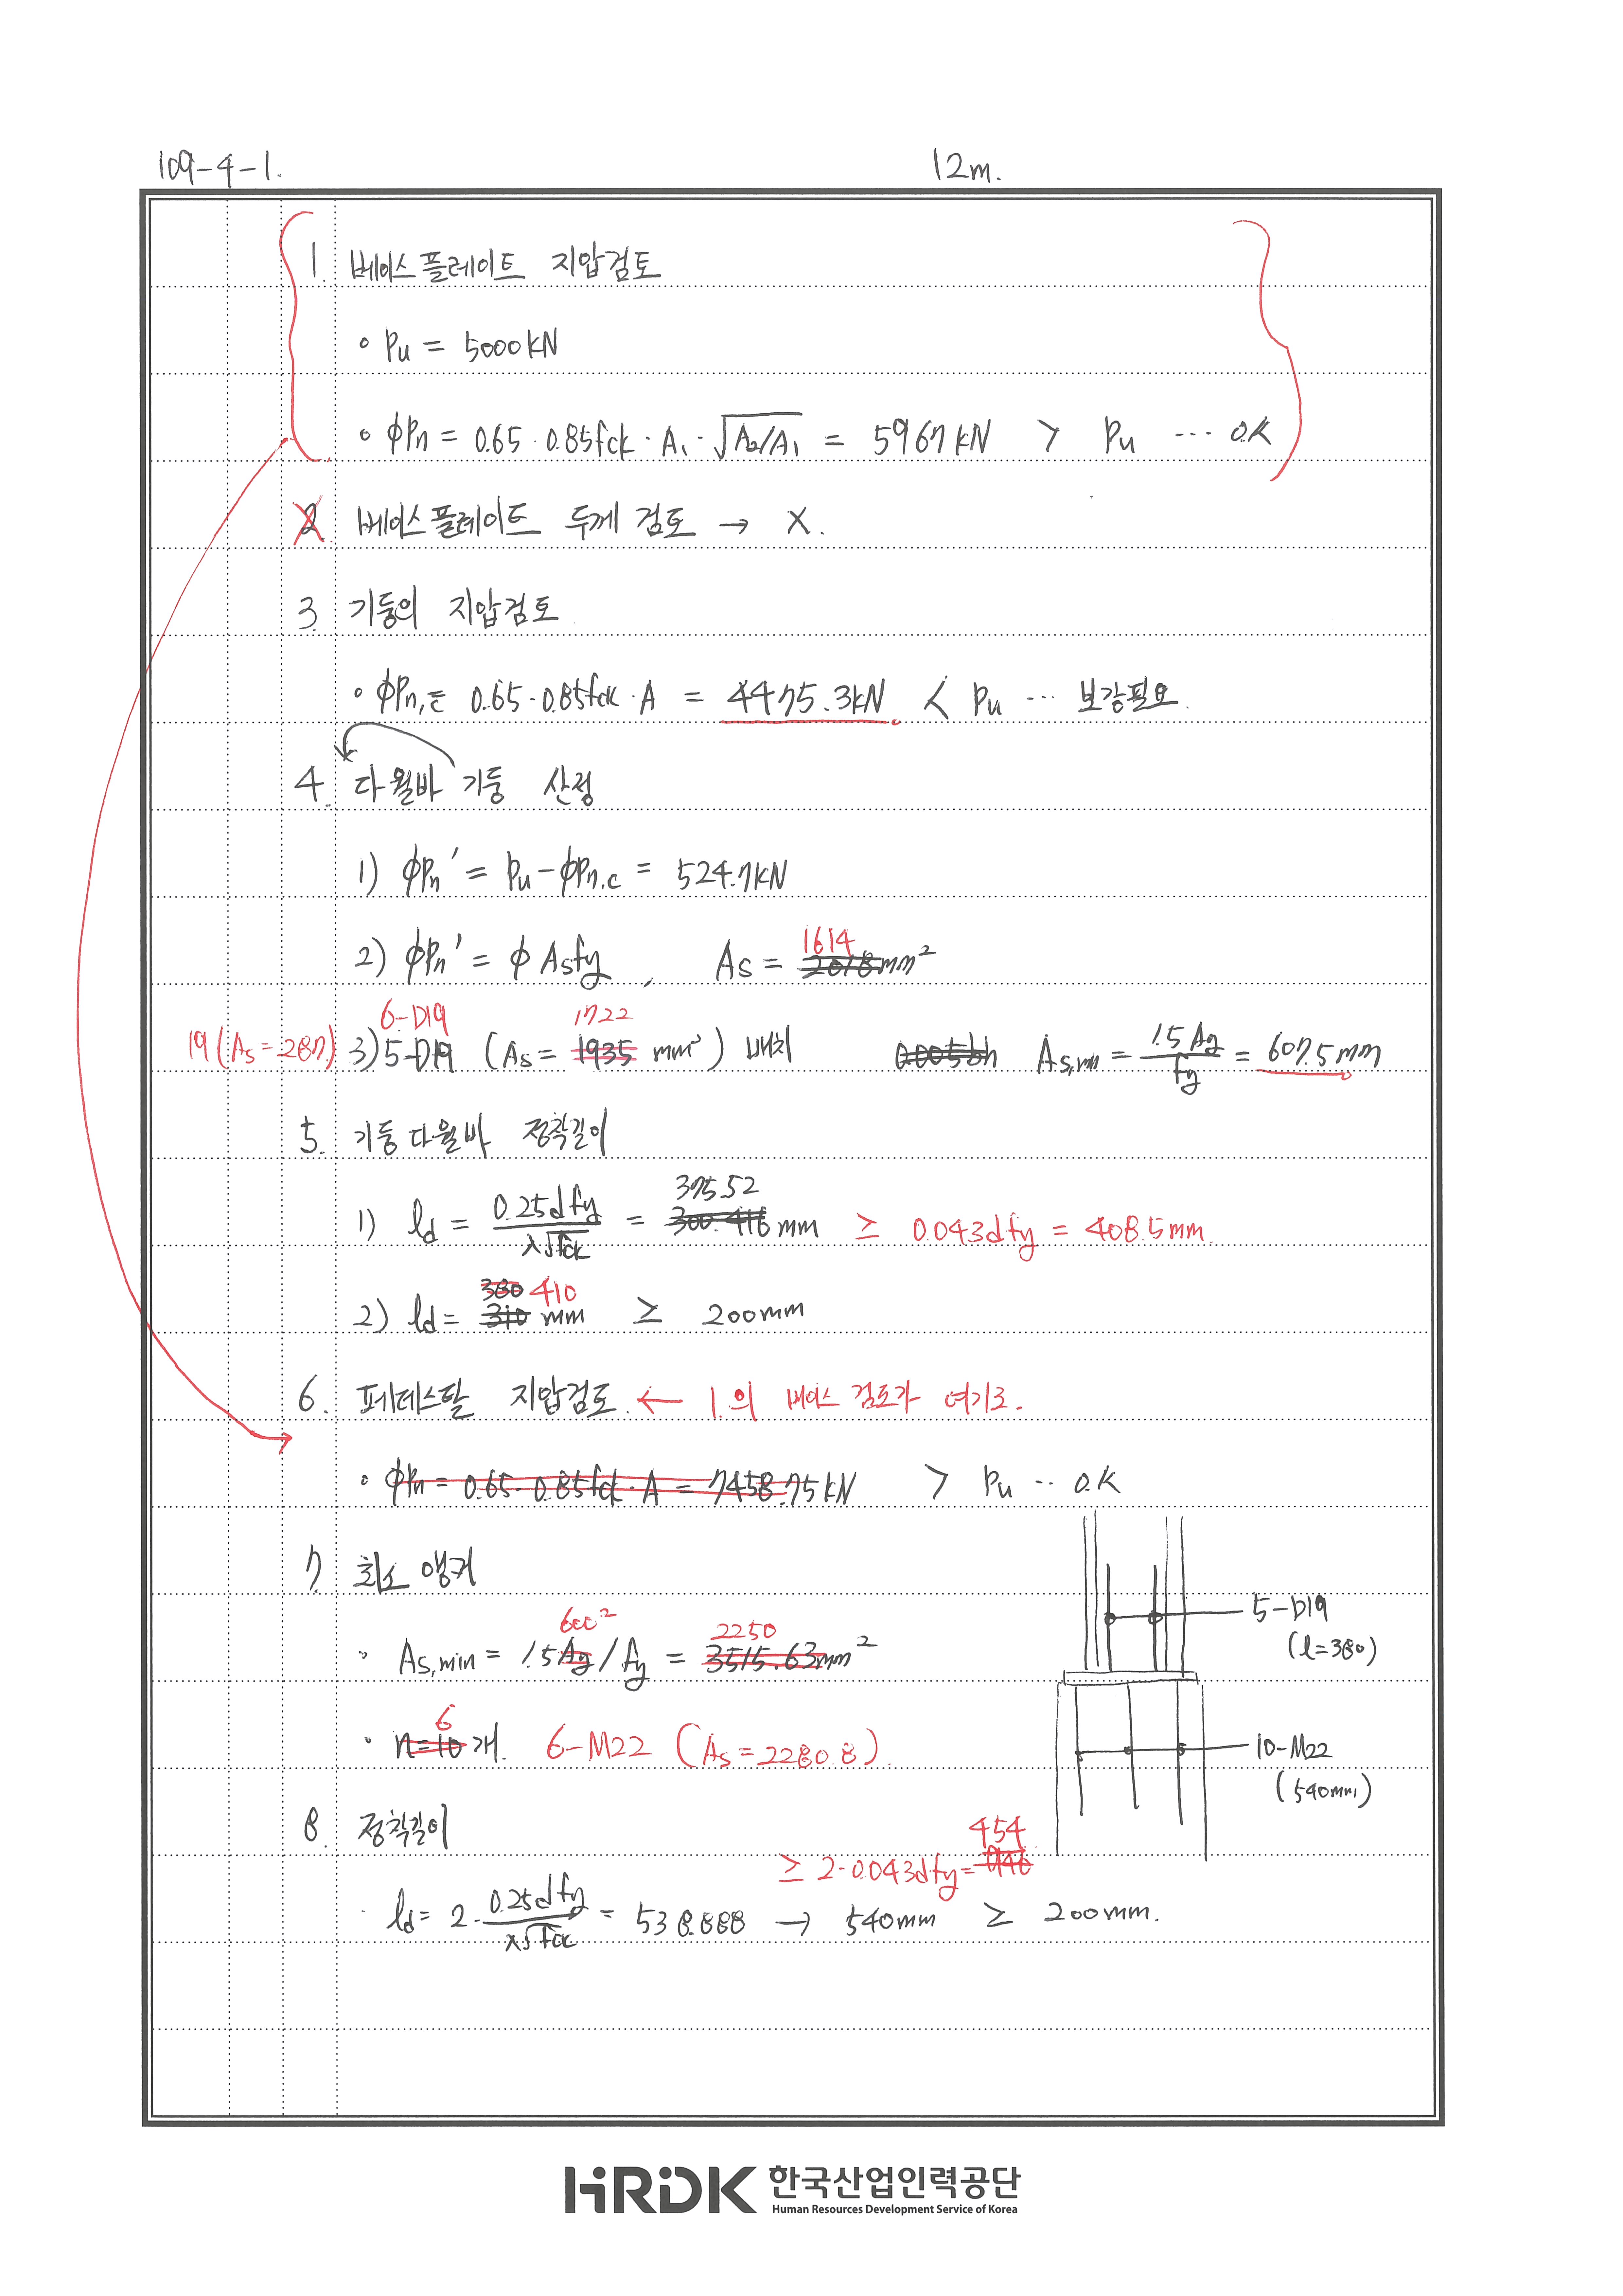 109-4-1.
12m.
1. 베이스플레이트 지압검토
∘ Pu = 5000kN
∘ ϕPn = 0.65·0.85fck·A₁·√(A₂/A₁) = 5967kN > Pu ... O.K
2 베이스플레이트 두께 검토 → X.
3. 기둥의 지압검토
∘ ϕPn,c = 0.65·0.85fck·A = 4475.3kN < Pu ... 보강필요.
4. 다월바 기둥 산정
1) ϕPn' = Pu-ϕPn,c = 524.7kN
2) ϕPn' = ϕAsfy, As = 2018 1614 mm²
19(As=287) 3) 5-D19 6-D19 (As = 1935 1722 mm²) 배치 0.005bh As,min = 1.5Ag/fy = 607.5mm
5. 기둥다월바 정착길이
1) ld = 0.25dfy/λ√fck = 300.416 375.52 mm ≥ 0.043dfy = 408.5mm
2) ld = 310 380 410 mm ≥ 200mm
6. 페데스탈 지압검토. ← 1.의 베이스 검토가 여기로.
∘ ϕPn = 0.65·0.85fck·A = 7458.75kN > Pu ... O.K
7. 최소 앵커
∘ As,min = 1.5Ag 600² /fy = 3515.63 2250 mm²
∘ n=10 6 개. 6-M22 (As=2280.8)
5-D19
(l=380)
10-M22
(540mm)
8. 정착길이
≥ 2·0.043dfy = 454
∘ ld = 2·0.25dfy/λ√fck = 538.888 → 540mm ≥ 200mm.
HRDK 한국산업인력공단
Human Resources Development Service of Korea